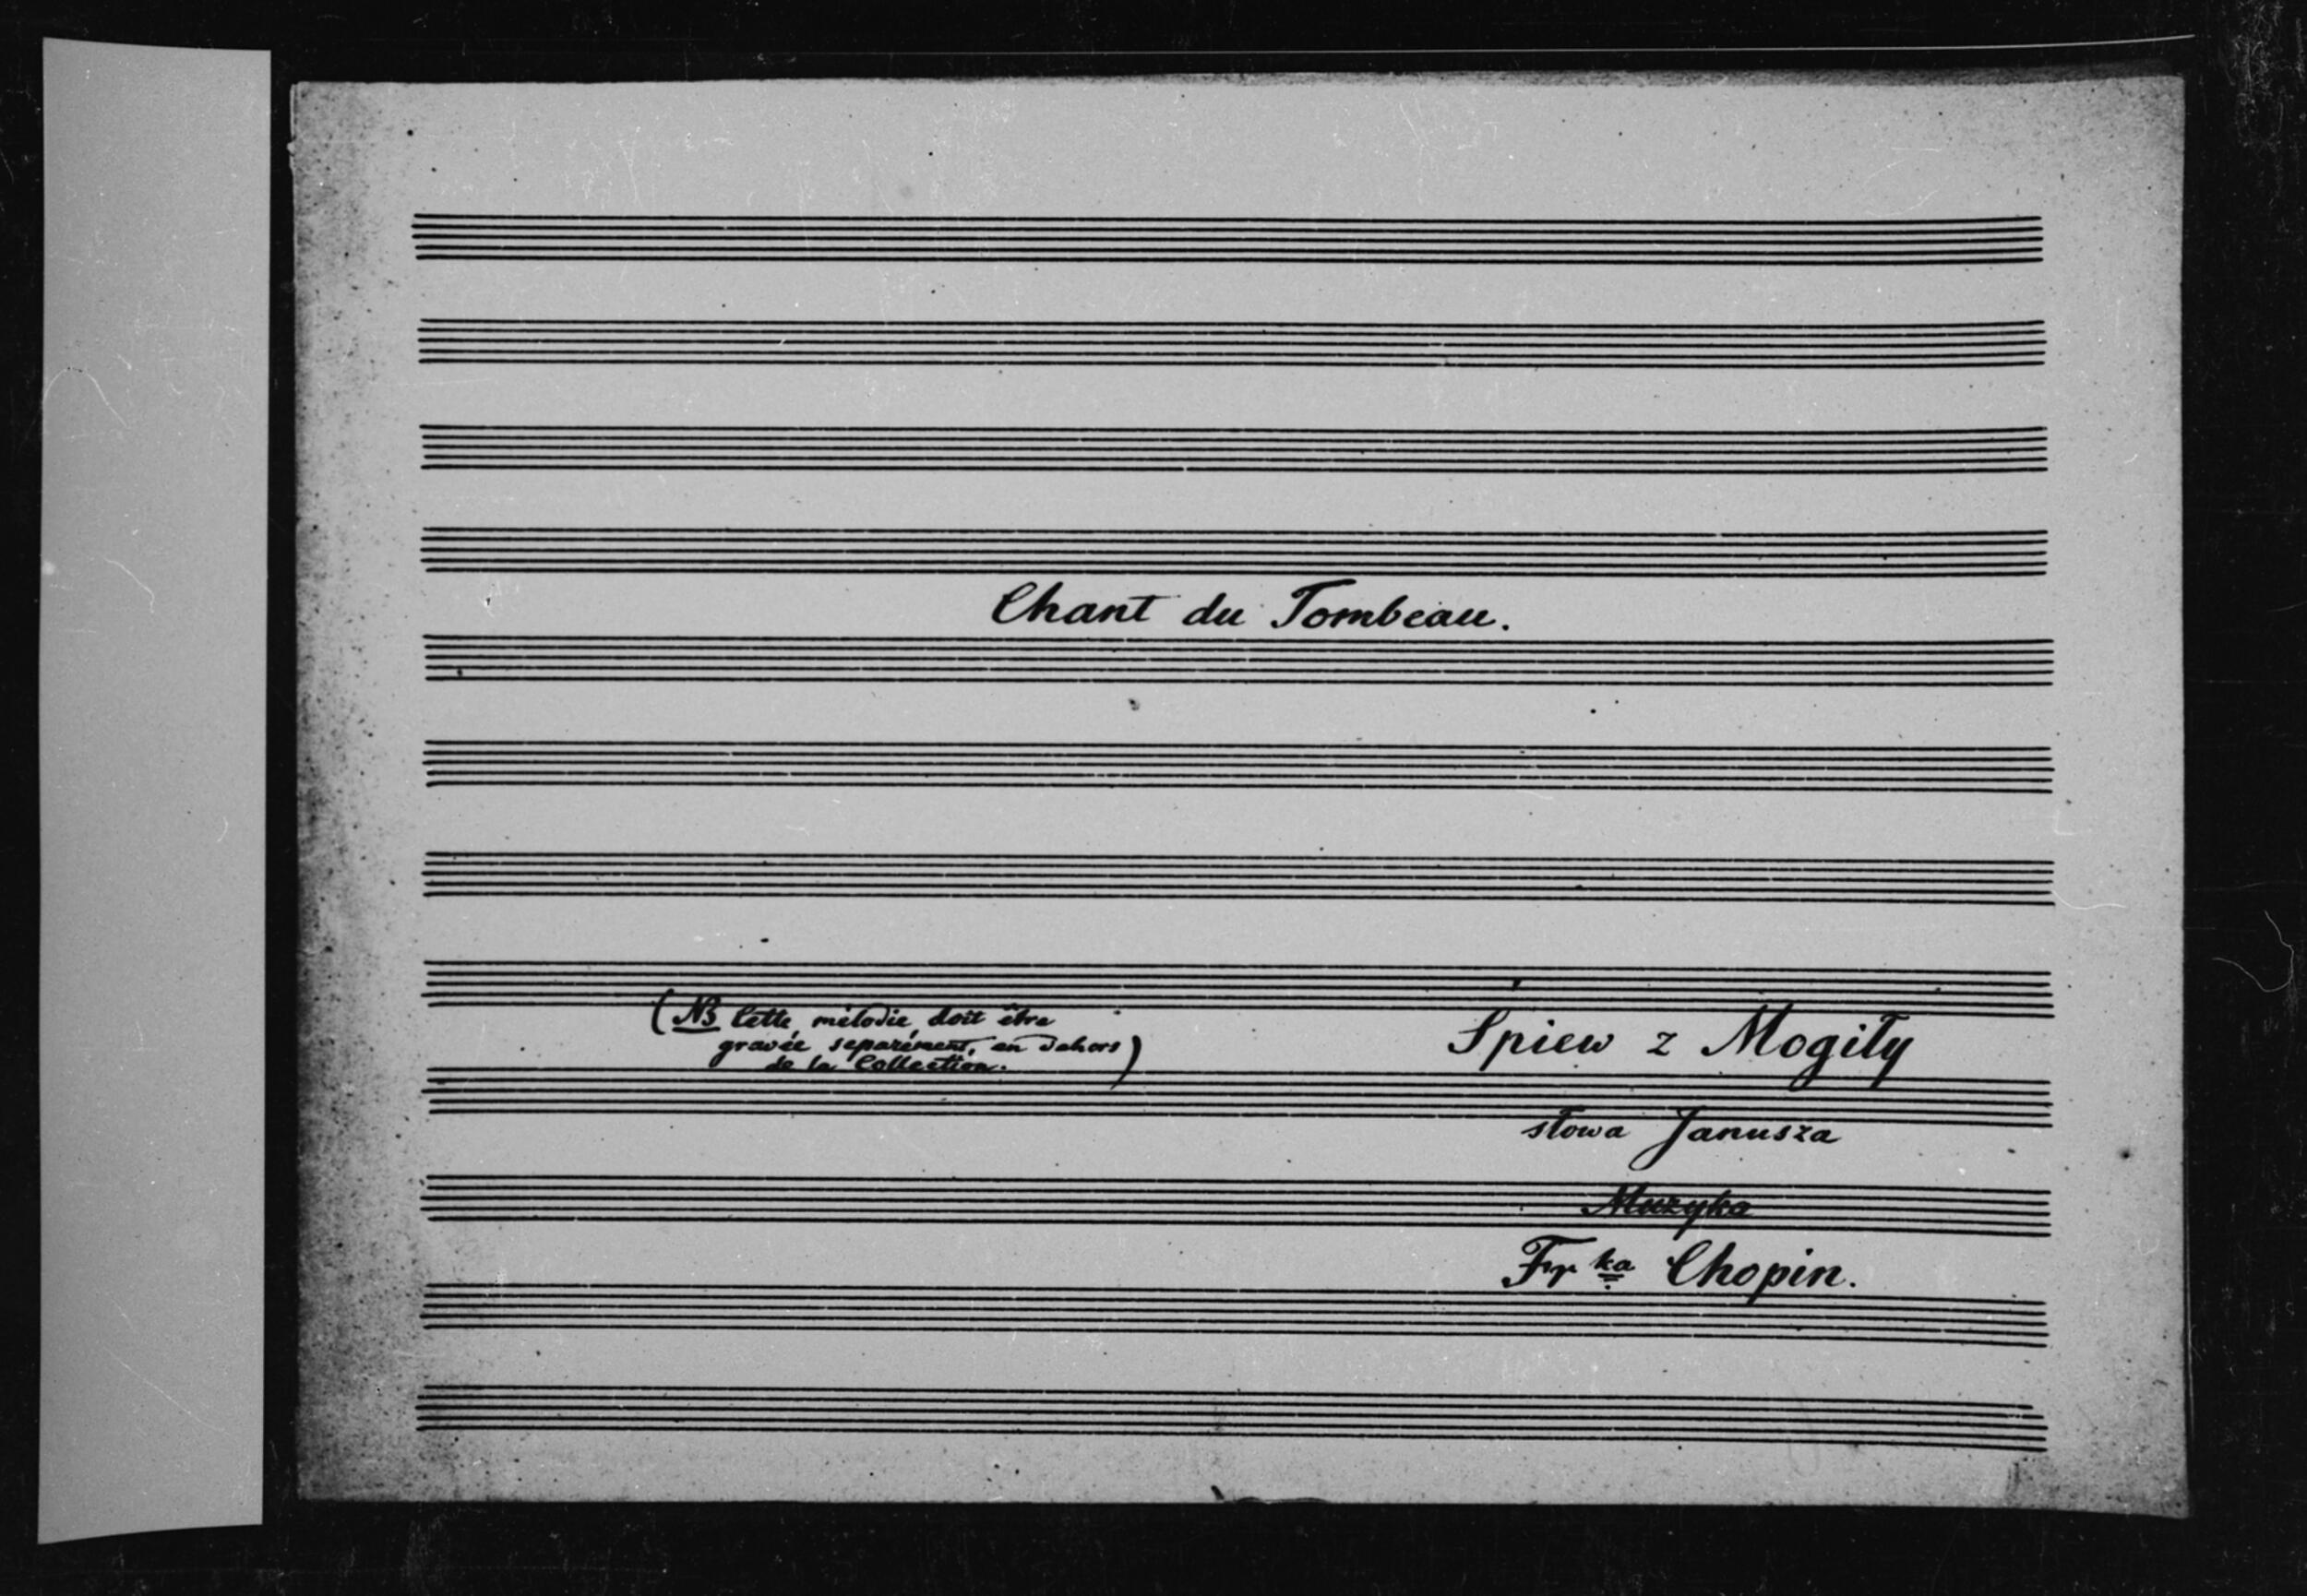 Chant du Tombeau.
(NB Cette mélodie doit être
gravée separément, en dehors
de la Collection.)
Śpiew z Mogiły
słowa Janusza
Muzyka
Fr ka Chopin.